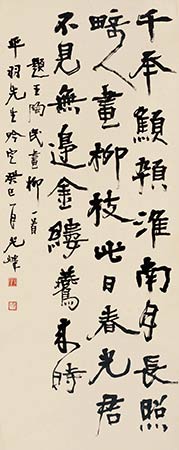 千年顦顇淮南月長照
畸人畫柳枝此日春光君
不見無邊金縷鷰來時
題王陶民畫柳一首
平羽先生吟定癸巳